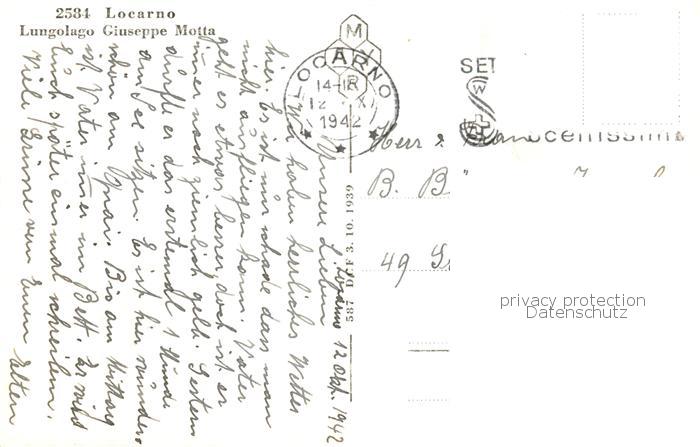 2584 Locarno
Lungolago Giuseppe Motta
M
R
LOCARNO
14-18
12 X
1942
SET
W
ocenissima
Herr &
B. B
49
587 DEF 3.10.1939
privacy protection
Datenschutz
Locarno 12 Okt. 1942
Unsere Lieben
Wir haben herrliches Wetter
hier. Es ist nur schade dass man
nicht ausfliegen kann. Vater
geht es etwas besser, doch ist er
immer noch ziemlich gelb. Gestern
durfte er das erstemal 1 Stunde
am See sitzen. Es ist hier
schön am Quai. Bis am Mittag
ist Vater immer im Bett. Er wird
Euch später einmal schreiben.
Viele Grüsse von Euren Eltern